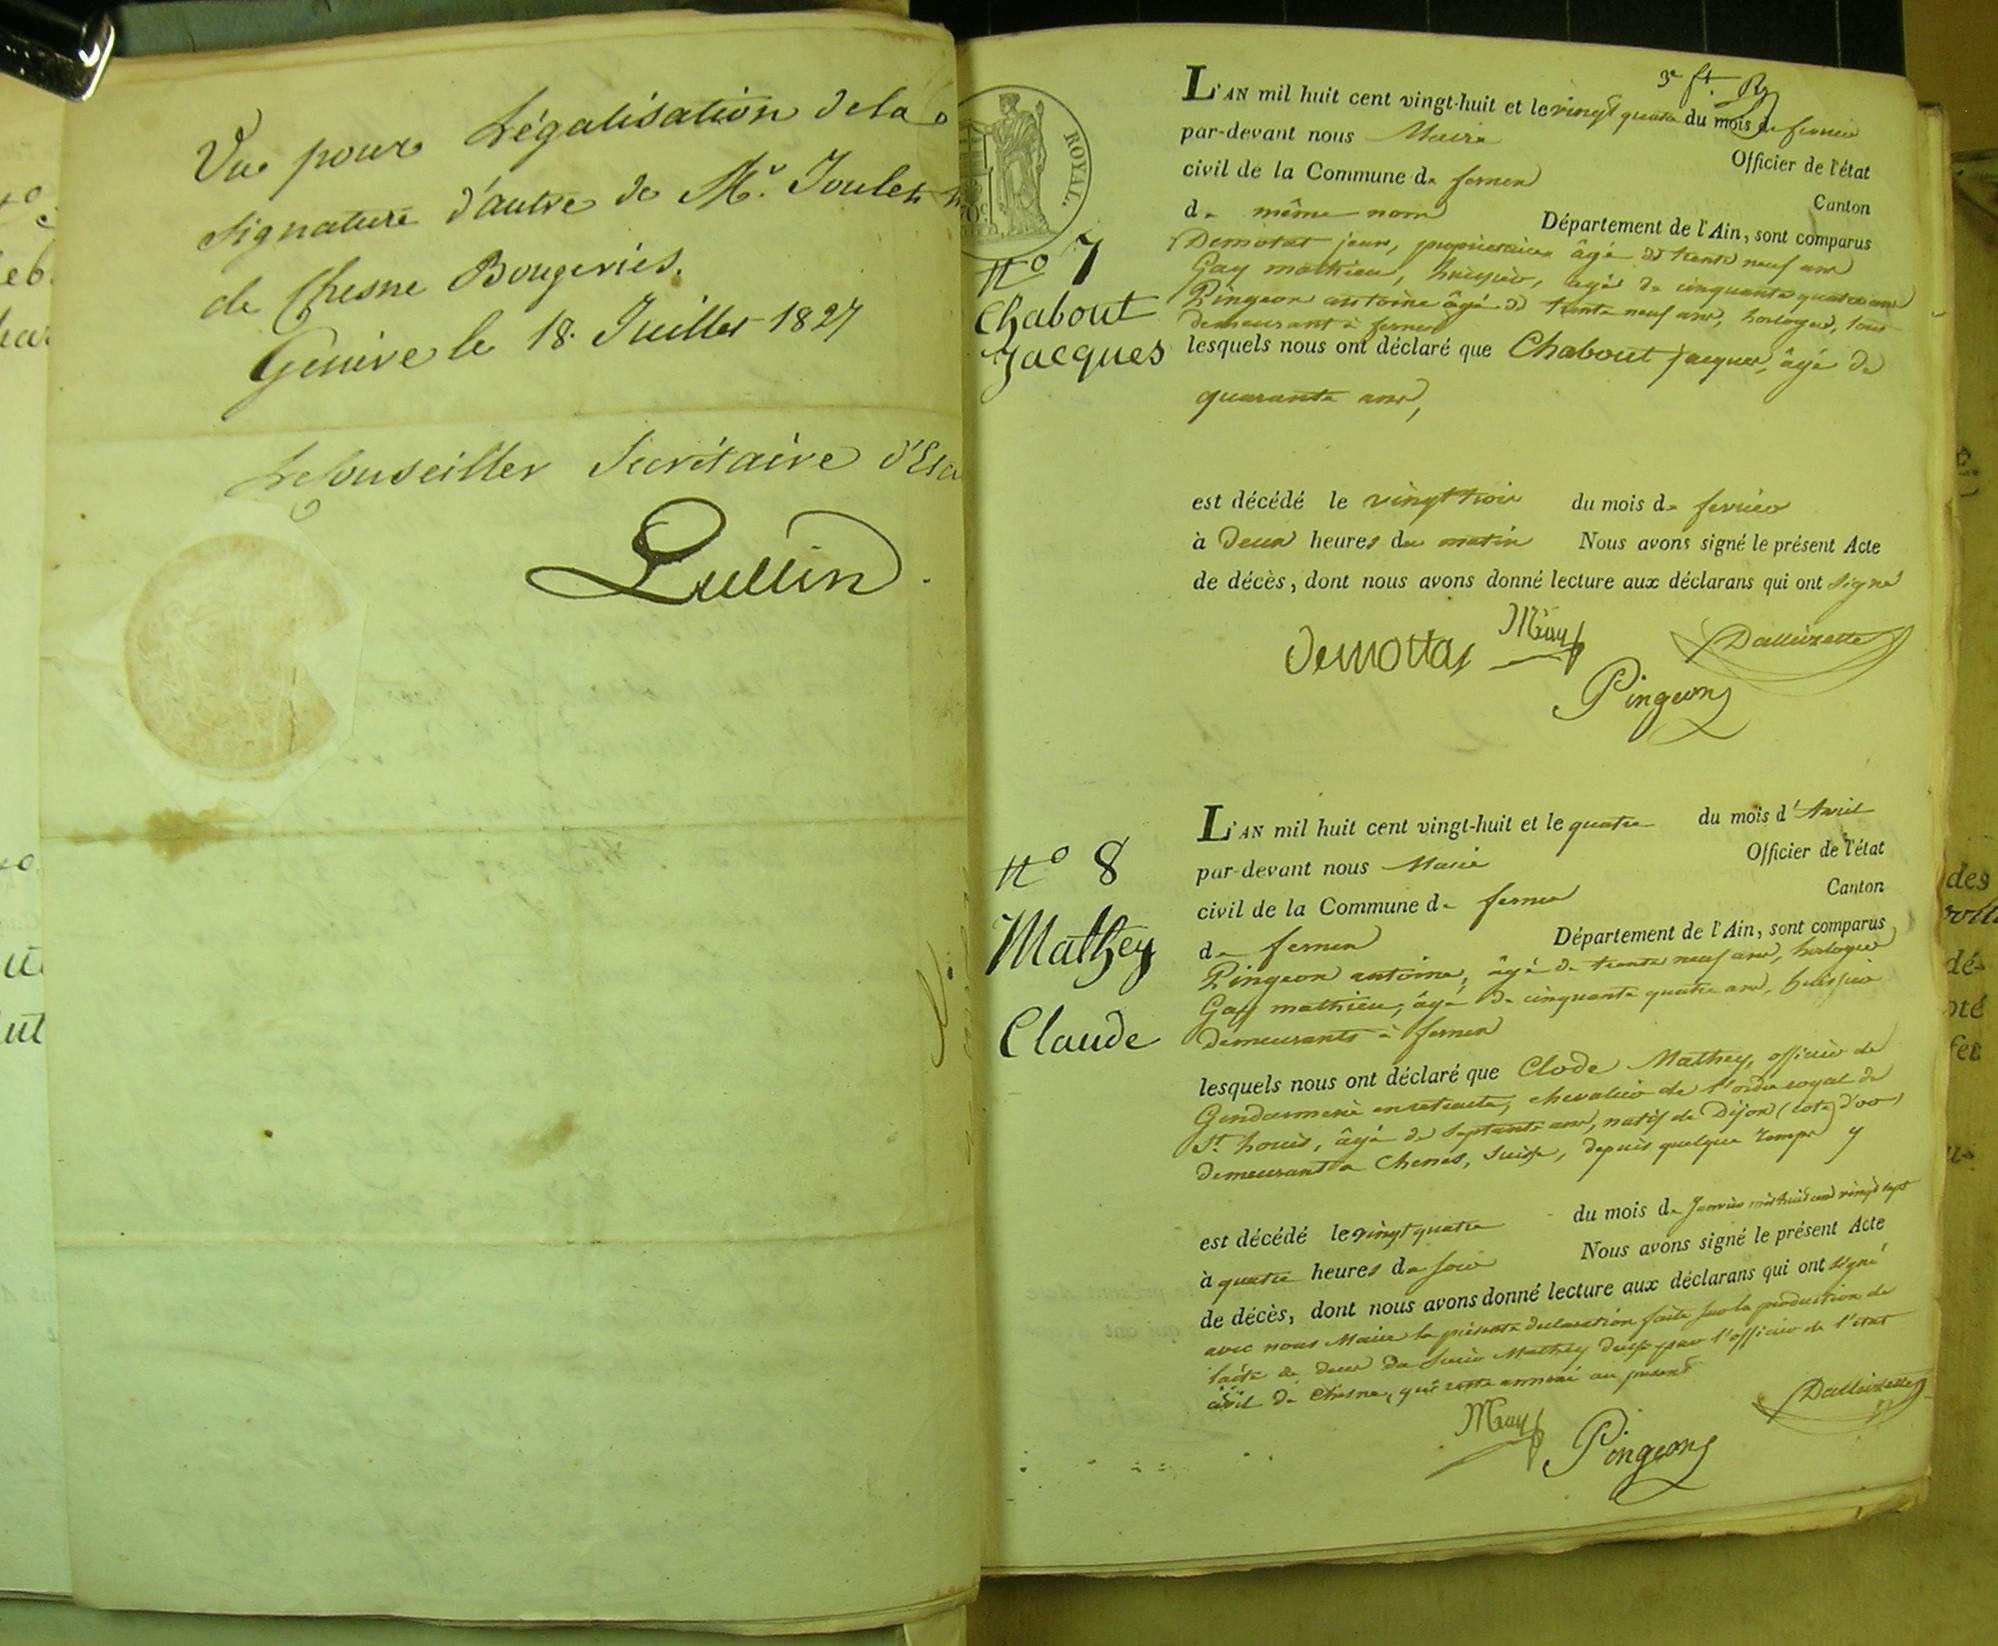 Vu pour Légalisation de la
signature d'autre de Mr. Joules
de Chesne Bougeries.
Genève le 18. Juillet 1827
Le Conseiller Secrétaire d'Eta
Lullin
3e ft.
ROYAL.
L'AN mil huit cent vingt-huit et le vingt quatre du mois de fevrier
par-devant nous Maire
Officier de l'état
civil de la Commune de fernex
Canton
de même nom
Département de l'Ain, sont comparus
No 7
Chabout
Jacques
Demotat jean, propriétaire âgé de trente neuf ans
Gay mathieu, huissier, agé de cinquante quatre ans
Pingeon antoine âgé de trente neuf ans, horloger, tous
demeurant à fernex
lesquels nous ont déclaré que Chabout jacques, âgé de
quarante ans,
est décédé le vingt trois du mois de fevrier
à deux heures du matin Nous avons signé le présent Acte
de décès, dont nous avons donné lecture aux déclarans qui ont signé
demottas MGay Dallvizette
Pingeon
L'AN mil huit cent vingt-huit et le quatre du mois d'Avril
par-devant nous Maire
Officier de l'état
civil de la Commune de fernex
Canton
de fernex
Département de l'Ain, sont comparus
No 8
Mathey
Claude
Pingeon antoine, âgé de trente neuf ans, horloger
Gay mathieu, âgé de cinquante quatre ans, huissier
demeurants à fernex
lesquels nous ont déclaré que Clode Mathey, officier de
Gendarmerie en retraite, chevalier de l'ordre royal de
St. Louis, âgé de septante ans, natif de Dijon (cote d'or)
demeurant a Chenes, Suisse, depuis quelque temps y
est décédé le vingt quatre du mois de Janvier mil huit cent vingt sept
à quatre heures du soir Nous avons signé le présent Acte
de décès, dont nous avons donné lecture aux déclarans qui ont signé
avec nous Maire la présente declaration faite sur la production de
l'acte de deces du Sieur Mathey par l'officier de l'état
civil de Chesne, qui reste annexé au present
MGay Pingeon Dallvizette